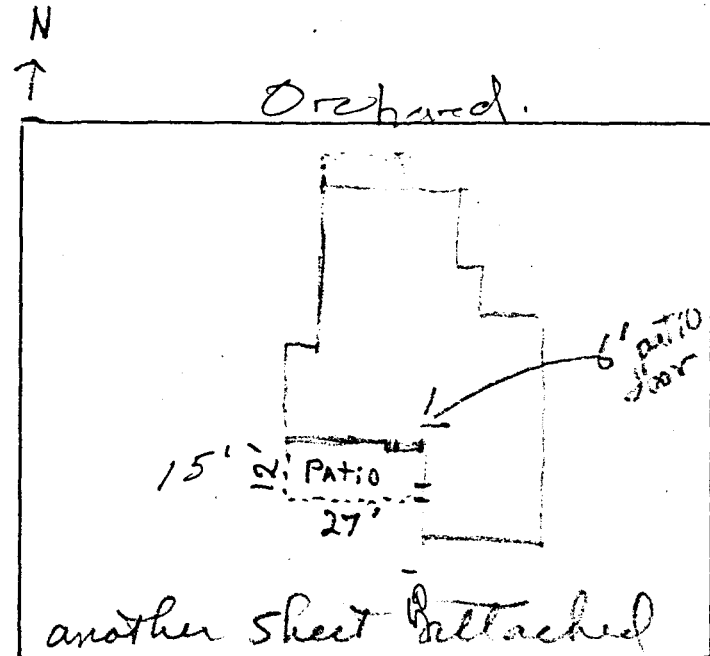 N
Orchard.
6' patio
door
15' 2 PATIO
27'
another sheet attached